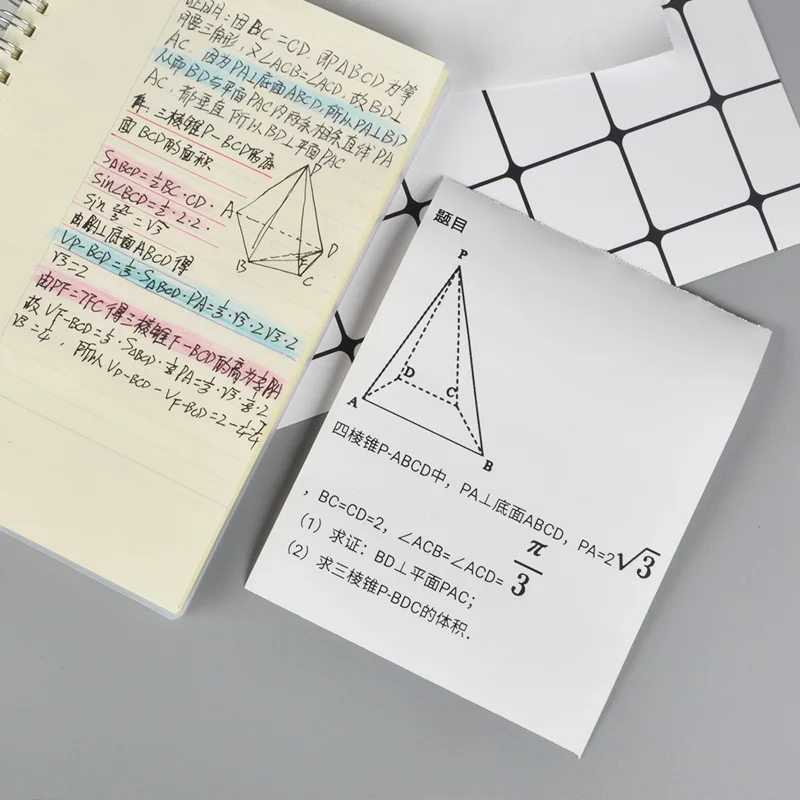 证明:因BC=CD,即△BCD为等
腰三角形,又∠ACB=∠ACD,故BD⊥
AC,因为PA⊥底面ABCD,所以PA⊥BD
从而BD与平面PAC内两条相交直线PA
AC,都垂直所以BD⊥平面PAC
三棱锥P-BCD的底
面BCD的面积
S△BCD=½BC·CD·
sin∠BCD=½·2·2·
sin 2π/3=√3
底面ABCD得
VP-BCD=⅓·S△BCD·PA=⅓·√3·2√3·2
√3=2
由PF=7FC得三棱锥F-BCD的高为⅛PA
故VF-BCD=⅓·S△BCD·⅛PA=⅓·√3·⅛·2
√3=¼,所以VP-BCD-VF-BCD=2-¼=7/4
A
B
C
D
题目
P
D
C
A
B
四棱锥P-ABCD中,PA⊥底面ABCD,PA=2√3
,BC=CD=2,∠ACB=∠ACD=π/3
(1)求证:BD⊥平面PAC;
(2)求三棱锥P-BDC的体积.